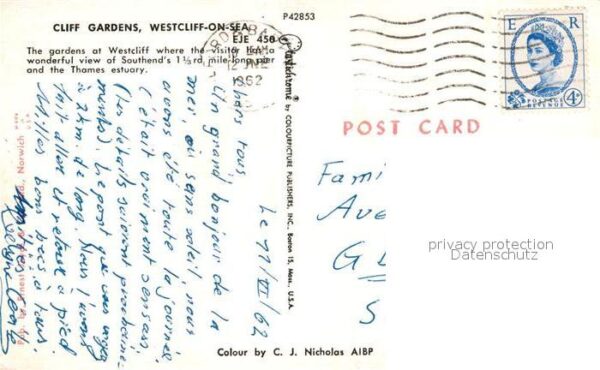 CLIFF GARDENS, WESTCLIFF-ON-SEA
EJE 450
The gardens at Westcliff where the visitor has a
wonderful view of Southend's 1⅓rd mile long pier
and the Thames estuary.
P42853
12 JNE
1962
E R
POSTAGE
REVENUE
4D
POST CARD
plastichrome® by COLOURPICTURE PUBLISHERS, INC., Boston 15, Mass., U.S.A.
Norwich
Le 11/VI/62
Chers tous,
Un grand bonjour de la
mer, où sans soleil, nous
avons été toute la journée
C'était vraiment sensas.
(les détails suivront prochaine-
ment) Le pont que vous voyez
a 2 km. de long. Nous l'avons
fait aller et retour à pied
Milles bons baisers à tous.
Fami
Ave
G
S
privacy protection
Datenschutz
Colour by C. J. Nicholas AIBP